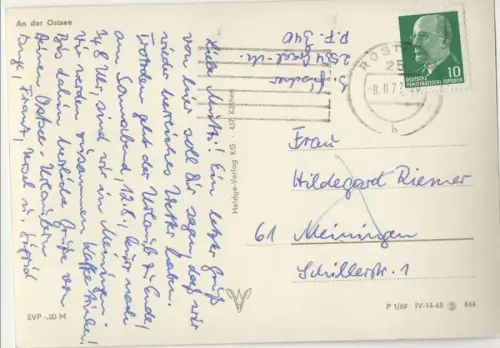 An der Ostsee
Liebe Mutti! Ein letzter Gruß
von hier soll Dir sagen, daß wir
wieder herrliches Wetter haben.
Leider geht der Urlaub zu Ende,
am Sonnabend, 12.8., kurz nach
Uhr, sind wir in Meiningen.
Wir werden zusammen Kaffee trinken!
Bis dahin herzliche Grüße von
Deinen Ostsee-Urlaubern
Inge, Franz, u. Sigrid
EVP -,20 M
Heldge-Verlag KG · 437 Köthen
Fischer
P.F. 340
ROST
25
-8.8.72
b
10
DEUTSCHE
DEMOKRATISCHE REPUBLIK
Frau
Hildegard Riemer
61 Meiningen
Schillerstr. 1
P 1/69 IV-14-45 644